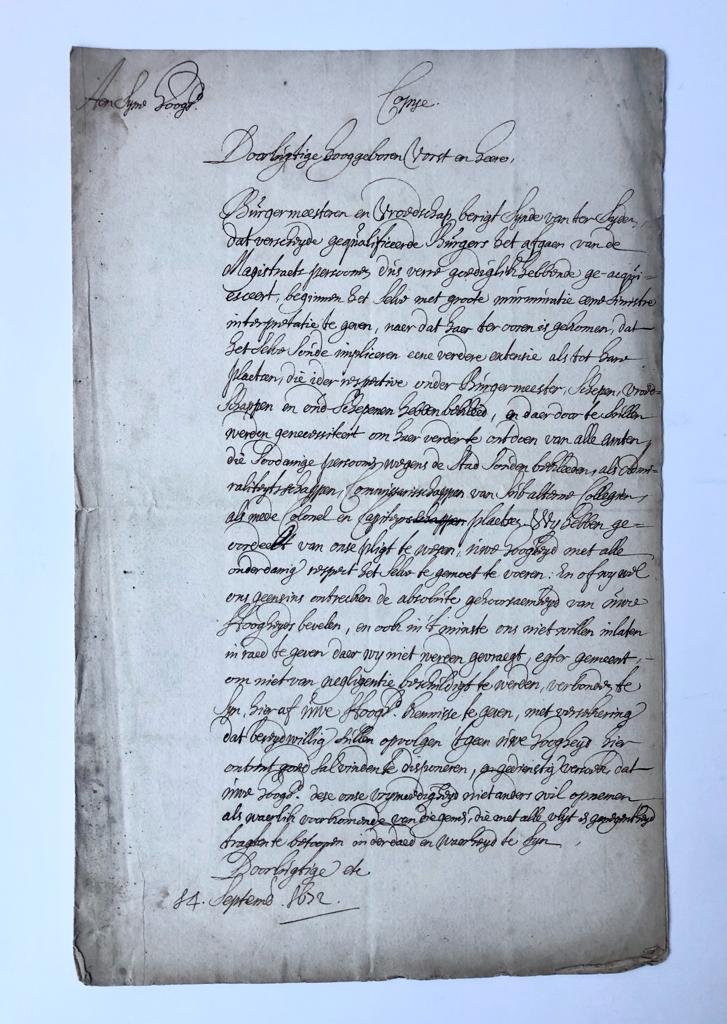 Aen Syne Hoogh.t
Copye.
Doorlugtige hooggeboren Vorst en heere,
Burgermeesteren en Vroedschap, berigt Synde van ter Syden,
dat verscheyde gequalificeerde Burgers het afgaen van de
Magistraets persoonen dus verre goediglick hebbende ge-acqui-
esceert, beginnen het selve met groote murmuratie eene sinistre
interpretatie te geven, naer dat haer ter ooren is gekomen, dat
het selve soude impliceren eene verdere extensie als tot hare
plaetsen, die ider respective onder Burgermeester, Schepen, Vroed-
schappen en oud Schepenen hebben bekleed, en daer door te sullen
werden genecessiteert om haer verder te ontdoen van alle amten,
die soodanige persoonen wegens de Stad souden bekleeden, als Admi-
raliteytsschappen, Commissarisschappen van Subalterne Collegien,
als mede Colonel en Capiteyns plaetse. Wy hebben ge-
oordeelt van onse pligt te wesen, uwe hoogheyd met alle
onderdanig respect het selve te gemoet te voeren. En of wy wel
ons geensins ontrecken de absolute gehoorsaemheyd van uwe
Hoogheyds bevelen, en ook in 't minste ons niet willen inlaten
in raed te geven daer wy niet werden gevraegt, egter gemeent,
om niet van negligentie beschuldigt te werden, verbonden te
syn, hier af uwe Hoogh.t kennisse te geven, met versekering
dat bereydwillig sullen opvolgen 't geen uwe hoogheyd hier
omtrent goed sal vinden te disponeren, gedienstig versoeken dat
uwe Hoogh.t dese onse vrymoedigheyd niet anders wil opnemen
als waerlik voortkomende van die gene, die met alle vlyt
tragten te betoonen inderdaed en waerheyd te syn
Doorlugtige etc
14. Septemb. 1672.